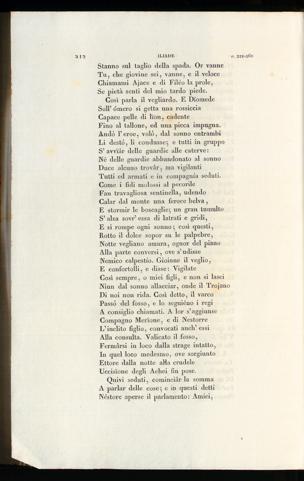 212 ILIADE v. 221-260
Stanno sul taglio della spada. Or vanne
Tu, che giovine sei, vanne, e il veloce
Chiamami Ajace e di Filéo la prole,
Se pietà senti del mio tardo piede.
Così parla il vegliardo. E Diomede
Soll' ómero si getta una rossiccia
Capace pelle di lion, cadente
Fino al tallone, ed una picca impugna.
Andò l' eroe, volò, dal sonno entrambi
Li destò, li condusse; e tutti in gruppo
S' avvïâr delle guardie alle caterve:
Nè delle guardie abbandonato al sonno
Duce alcuno trovâr, ma vigilanti
Tutti ed armati e in compagnia seduti.
Come i fidi molossi al pecorile
Fan travagliosa sentinella, udendo
Calar dal monte una feroce belva,
E stormir le boscaglie; un gran tumulto
S' alza sovr' essa di latrati e gridi,
E si rompe ogni sonno; così questi,
Rotto il dolce sopor su le palpebre,
Notte vegliano amara, ognor del piano
Alla parte conversi, ove s' udisse
Nemico calpestio. Gioinne il veglio,
E confortolli, e disse: Vigilate
Così sempre, o miei figli, e non si lasci
Niun dal sonno allacciar, onde il Trojano
Di noi non rida. Così detto, il varco
Passò del fosso, e lo seguíeno i regi
A consiglio chiamati. A lor s' aggiunse
Compagno Merïone, e di Nestorre
L' inclito figlio, convocati anch' essi
Alla consulta. Valicato il fosso,
Fermârsi in loco dalla strage intatto,
In quel loco medesmo, ove sorgiunto
Ettore dalla notte alla crudele
Uccisione degli Achei fin pose.
Quivi seduti, cominciâr la somma
A parlar delle cose; e in questi detti
Néstore aperse il parlamento: Amici,